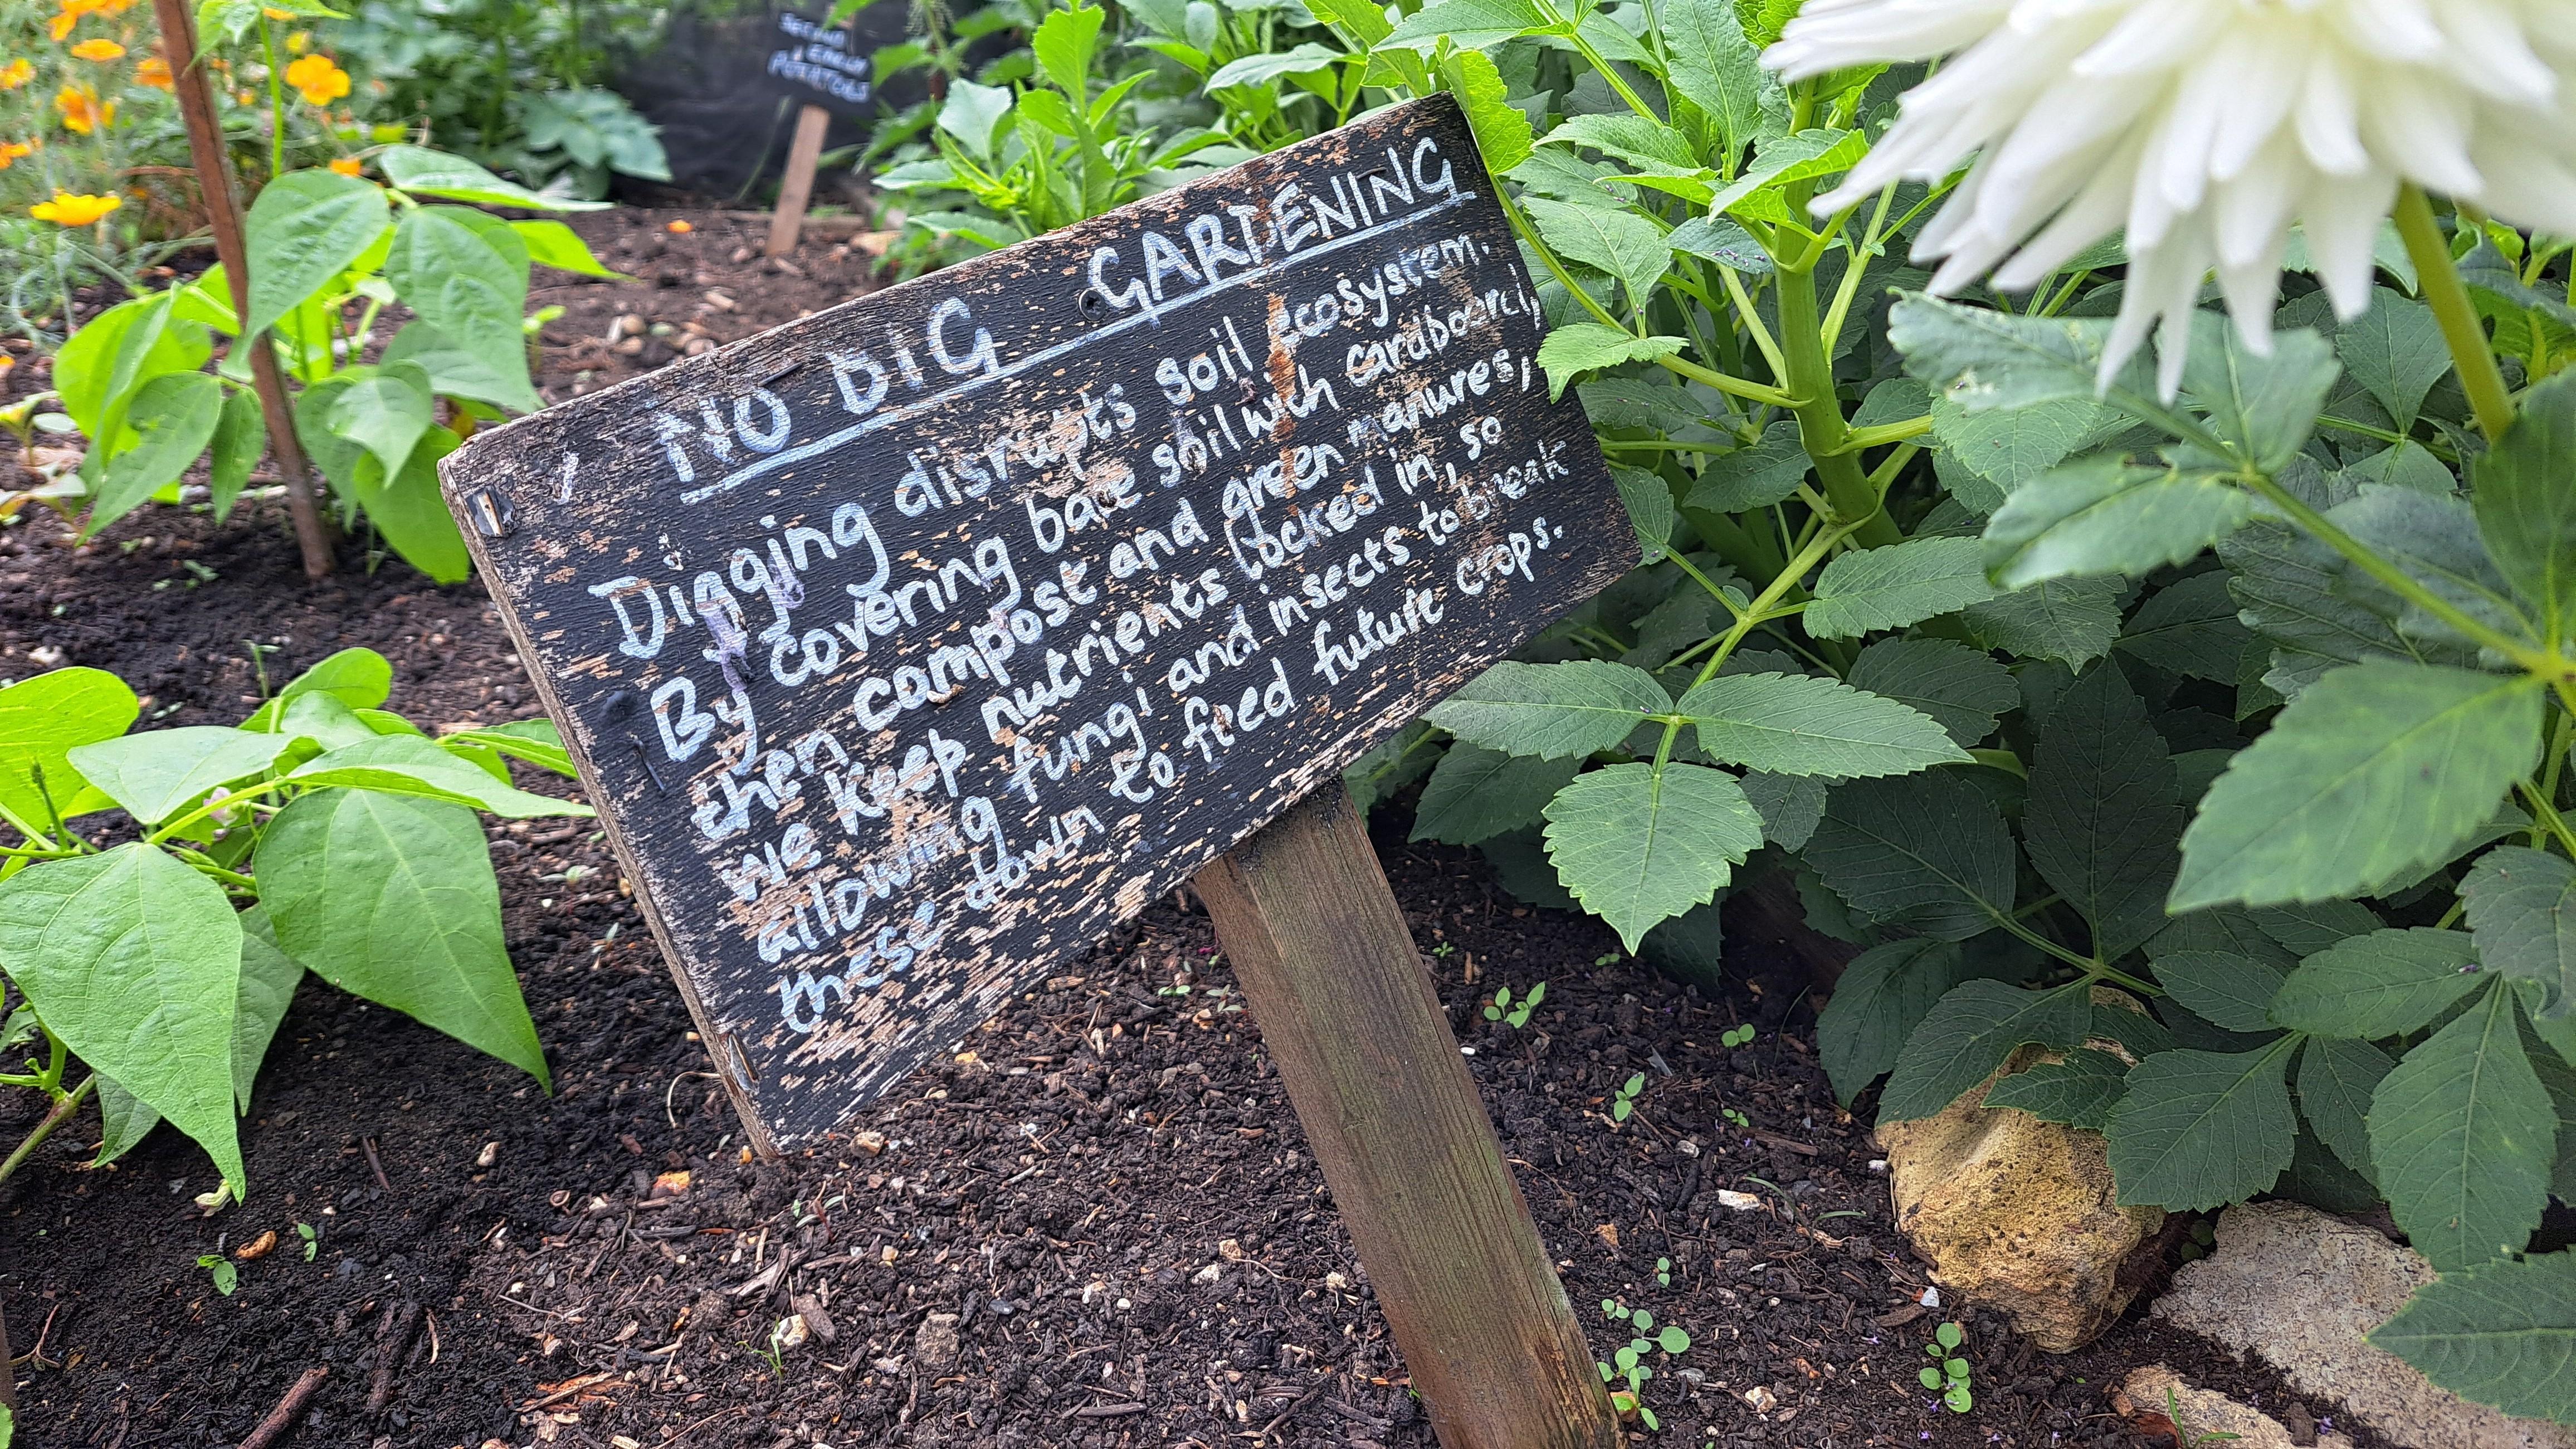 NO DIG GARDENING
Digging disrupts soil ecosystem.
By covering bare soil with cardboard,
then compost and green manures,
we keep nutrients locked in, so
allowing fungi and insects to break
these down to feed future crops.
SECOND
EARLY
POTATOES